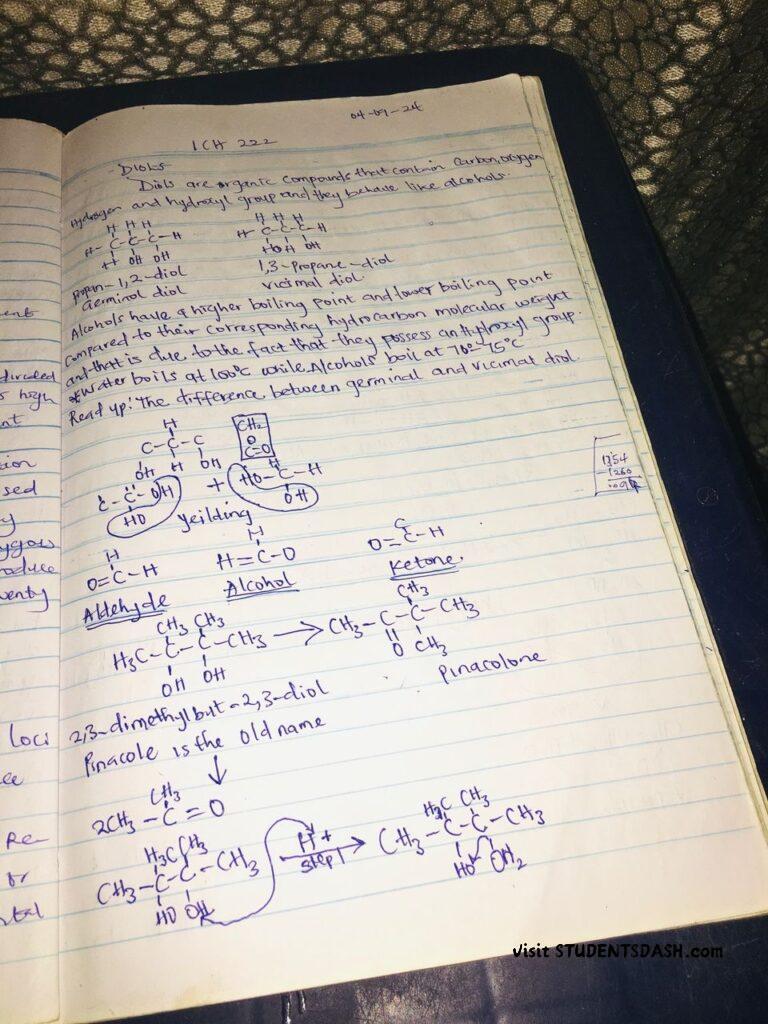 04-09-24
ICH 222
DIOLS
Diols are organic compounds that contain Carbon, oxygen
Hydrogen and hydroxyl group and they behave like alcohols.
H H H
H H H
H- C-C-C-H
H-C-C-C-H
H OH OH
HO H OH
Propan-1,2-diol
1,3-Propane-diol
Germinal diol
Vicimal diol
Alcohols have a higher boiling point and lower boiling point
Compared to their corresponding hydrocarbon molecular weight
and that is due to the fact that they possess an Hydroxyl group.
*Water boils at 100°C while Alcohols boil at 70°-75°C
Read up: The difference between germinal and vicimal diol.
H
CH2
C-C-C
O
C=O
OH H OH
C-C-OH
HO
+
HO-C-H
H
OH
yeilding
H
H
C
O=C-H
H=C-O
O=C-H
Aldehyde
Alcohol
Ketone.
CH3 CH3
CH3
H3C-C-C-CH3
CH3-C-C-CH3
OH OH
O CH3
Pinacolone
2,3-dimethylbut-2,3-diol
Pinacole is the old name
CH3
2CH3-C=O
H3C CH3
CH3-C-C-CH3
HO OH
H+
Step 1
H3C CH3
CH3-C-C-CH3
HO OH2
1354
1260
ent
divided
s high
nt
ion
sed
y
ygow
oduce
wenty
loci
ce
Re-
or
ntal
Visit STUDENTSDASH.com